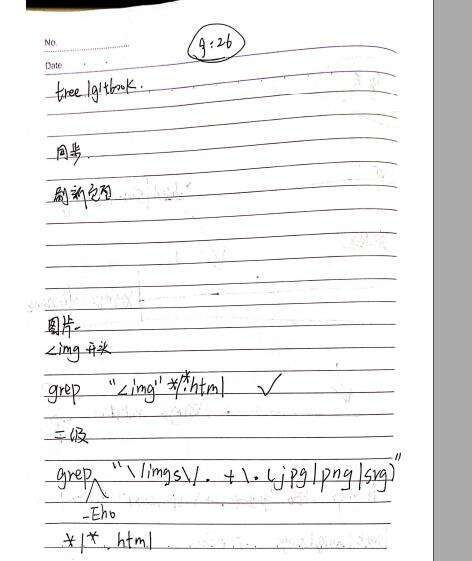 No.
9:26
Date
tree /gitbook.
同步.
刷新它图
图片.
<img 开头
grep "<img" */*.html ✓
二级
grep "\/imgs\/.+\.(jpg|png|svg)"
-Eho
*/*.html